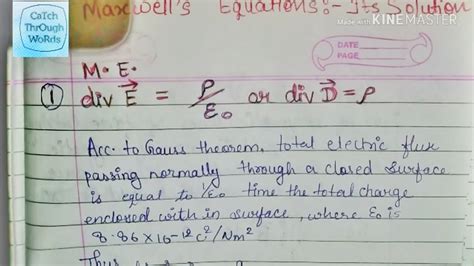 CaTch
ThrOugh
WoRds
Maxwell's Equations:- Its Solution
Made with KINEMASTER
DATE
PAGE
M. E.
① div E⃗ = ρ/ε₀ or div D⃗ = ρ
Acc. to Gauss theorem, total electric flux
passing normally through a closed surface
is equal to 1/ε₀ time the total charge
enclosed with in surface, where ε₀ is
8.86 × 10⁻¹² C²/Nm²
Thus